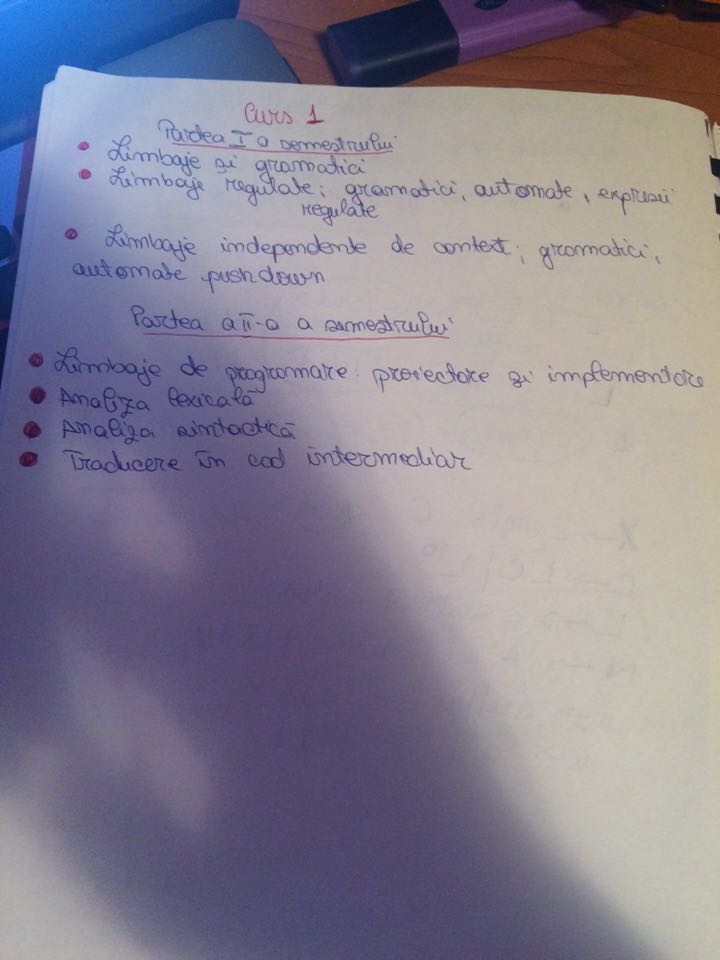 Curs 1
Partea I a semestrului
• Limbaje și gramatici
• Limbaje regulate; gramatici, automate, expresii
regulate
• Limbaje independente de context; gramatici,
automate pushdown
Partea a II-a a semestrului
• Limbaje de programare: proiectare și implementare
• Analiza lexicală
• Analiza sintactică
• Traducere în cod intermediar